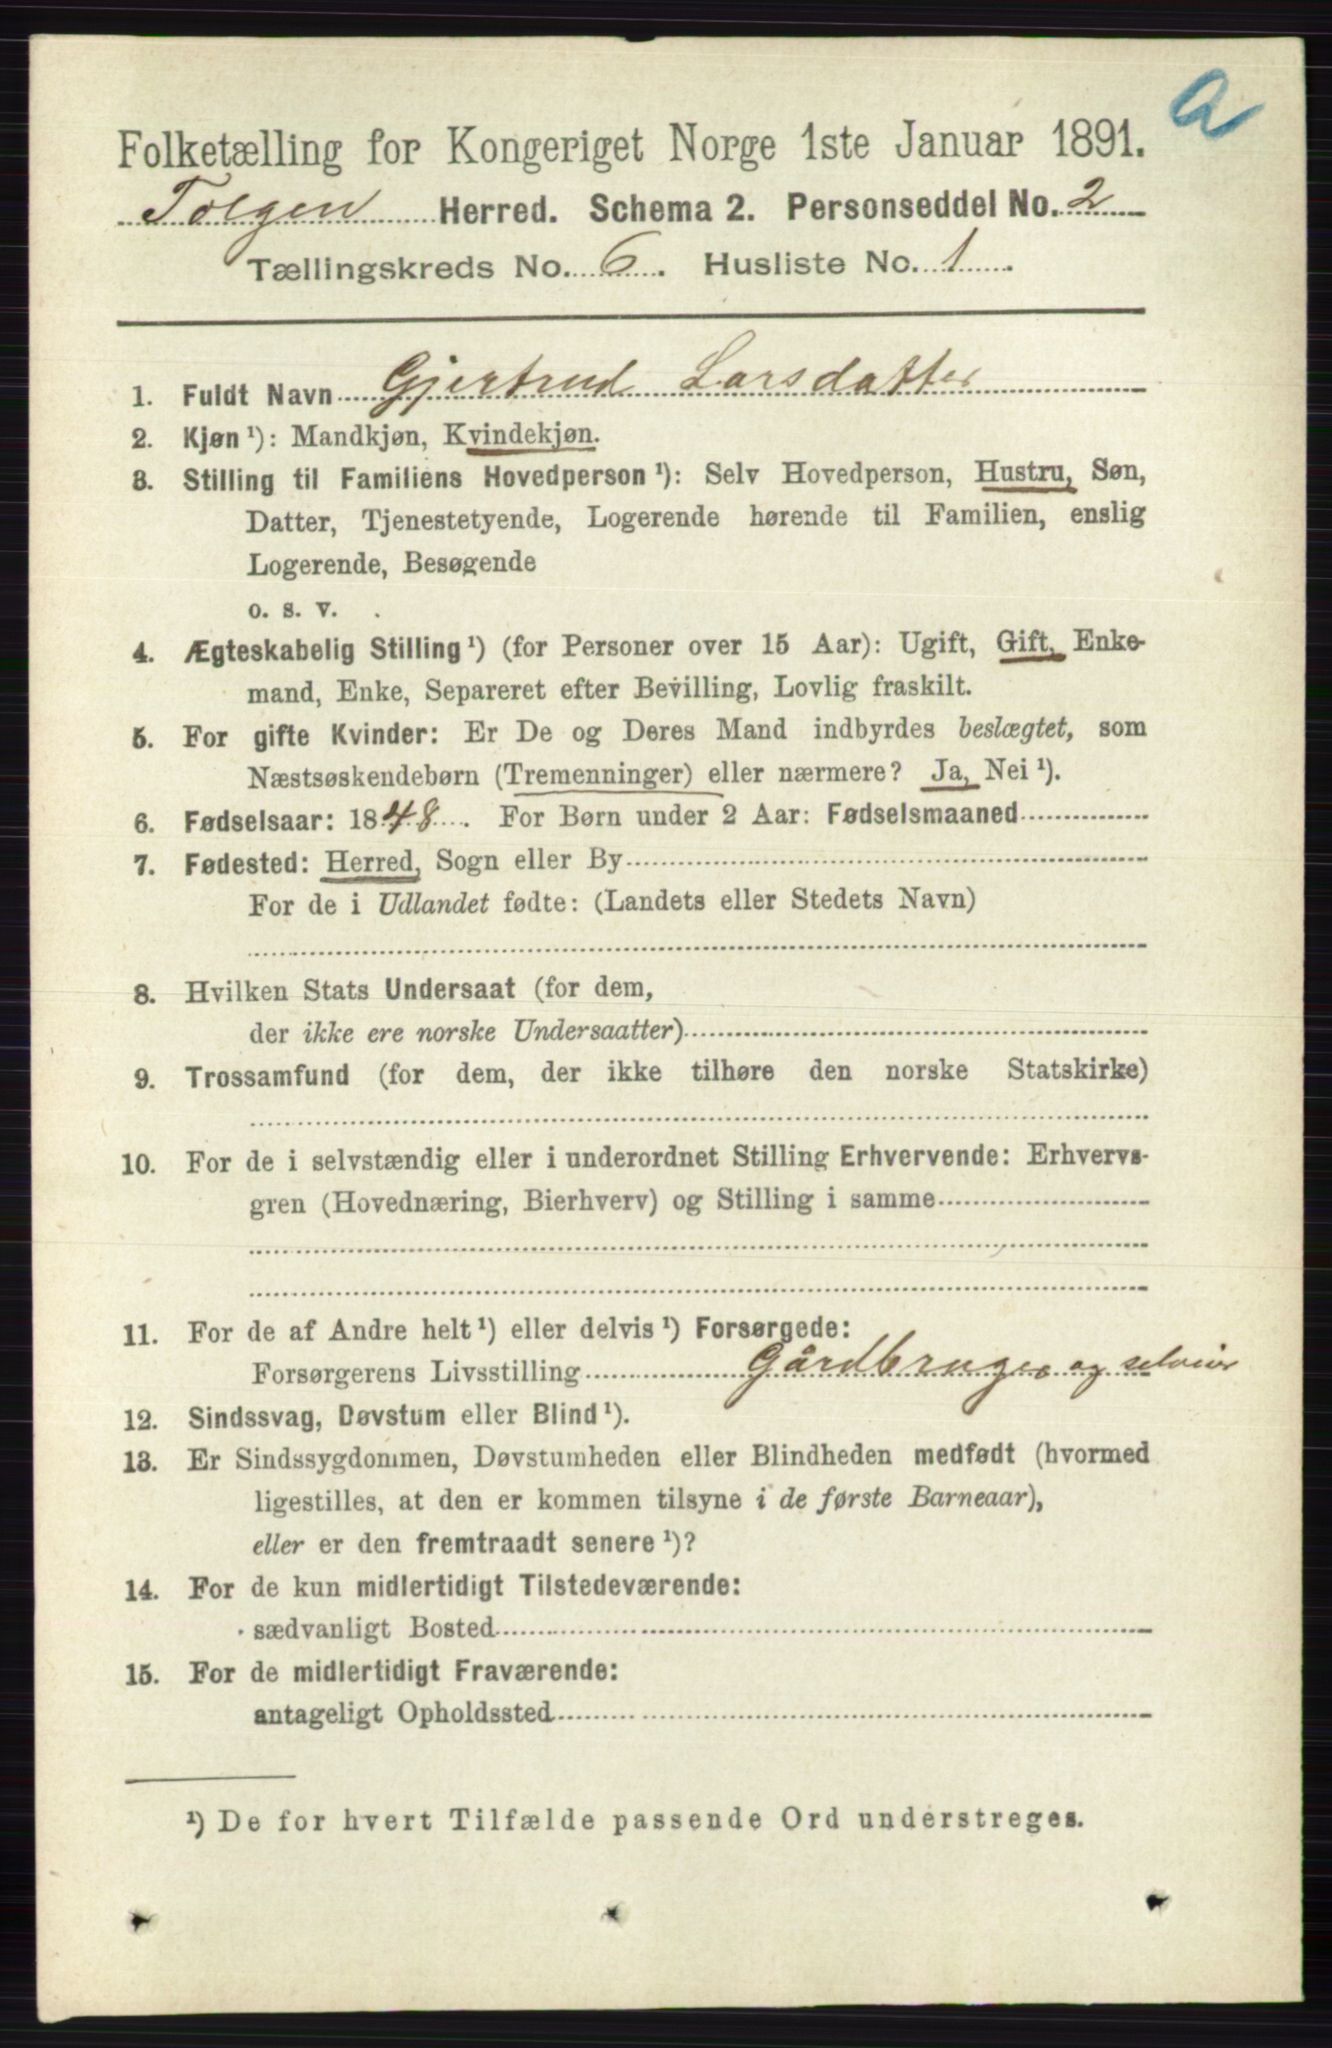 a
Folketælling for Kongeriget Norge 1ste Januar 1891.
Tolgen Herred. Schema 2. Personseddel No. 2
Tællingskreds No. 6. Husliste No. 1.
1. Fuldt Navn Gjertrud Larsdatter
2. Kjøn ¹): Mandkjøn, Kvindekjøn.
3. Stilling til Familiens Hovedperson ¹): Selv Hovedperson, Hustru, Søn,
Datter, Tjenestetyende, Logerende hørende til Familien, enslig
Logerende, Besøgende
o. s. v. .
4. Ægteskabelig Stilling ¹) (for Personer over 15 Aar): Ugift, Gift, Enke-
mand, Enke, Separeret efter Bevilling, Lovlig fraskilt.
5. For gifte Kvinder: Er De og Deres Mand indbyrdes beslægtet, som
Næstsøskendebørn (Tremenninger) eller nærmere? Ja, Nei ¹).
6. Fødselsaar: 1848. For Børn under 2 Aar: Fødselsmaaned
7. Fødested: Herred, Sogn eller By
For de i Udlandet fødte: (Landets eller Stedets Navn)
8. Hvilken Stats Undersaat (for dem,
der ikke ere norske Undersaatter)
9. Trossamfund (for dem, der ikke tilhøre den norske Statskirke)
10. For de i selvstændig eller i underordnet Stilling Erhvervende: Erhvervs-
gren (Hovednæring, Bierhverv) og Stilling i samme
11. For de af Andre helt ¹) eller delvis ¹) Forsørgede:
Forsørgerens Livsstilling Gårdbruger og selveier
12. Sindssvag, Døvstum eller Blind ¹).
13. Er Sindssygdommen, Døvstumheden eller Blindheden medfødt (hvormed
ligestilles, at den er kommen tilsyne i de første Barneaar),
eller er den fremtraadt senere ¹)?
14. For de kun midlertidigt Tilstedeværende:
sædvanligt Bosted
15. For de midlertidigt Fraværende:
antageligt Opholdssted
¹) De for hvert Tilfælde passende Ord understreges.